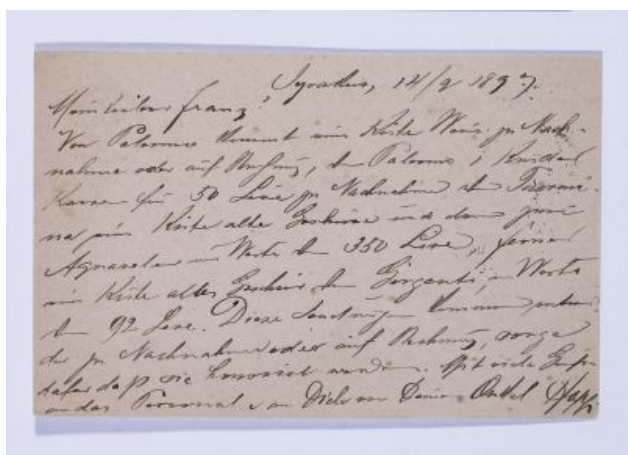 Syrakus, 14/9 1897.
Mein lieber Franz!
Von Palermo kommt eine Kiste Wein zu Nach-
nahme oder auf Rechnung, von Palermo 1
für 50 Lire zu Nachnahme von Taormi-
na eine Kiste alte und dann zwei
Aquarelle im Werte von 350 Lire, ferner
eine Kiste altes Geschirr von Girgenti, im Werte
von 92 Lire. Diese Sendungen kommen entwe-
der zu Nachnahme oder auf Rechnung, sorge
dafür daß sie honorirt werden. Mit viele Grüße
an das Personal u an Dich von Deinem Onkel